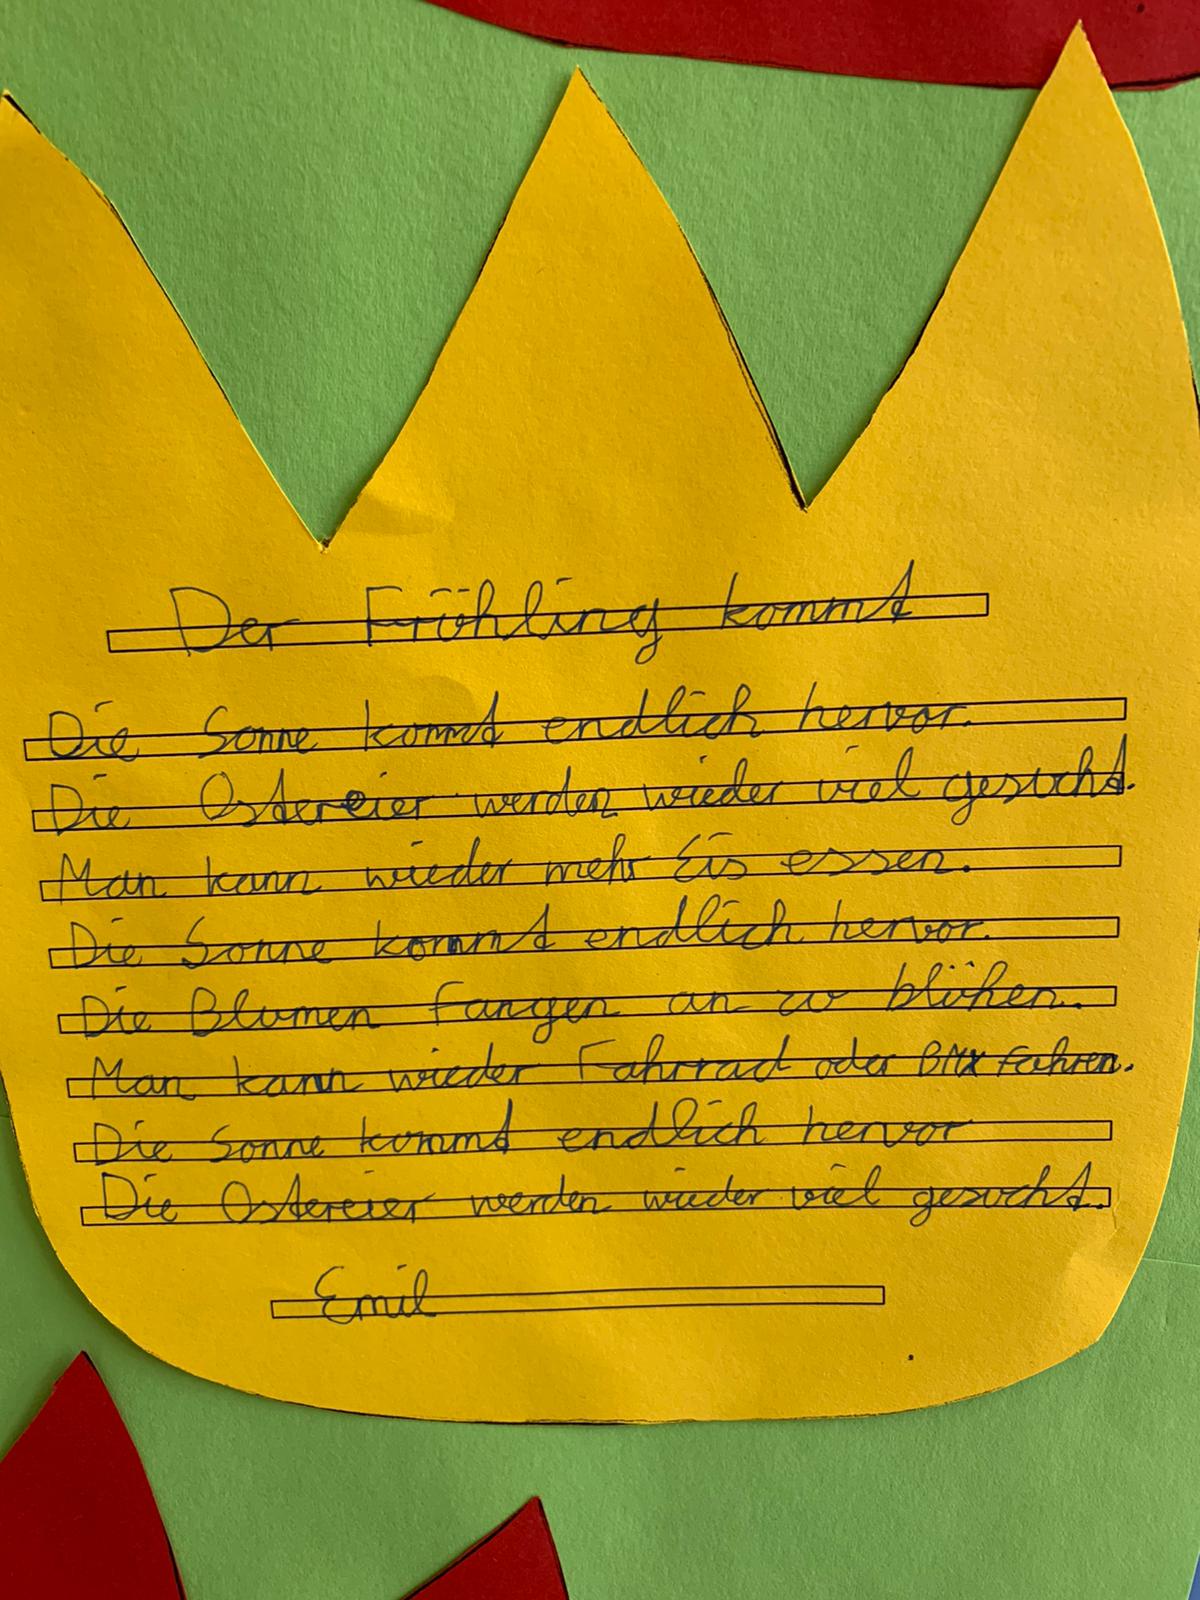 Der Frühling kommt
Die Sonne kommt endlich hervor.
Die Ostereier werden wieder viel gesucht.
Man kann wieder mehr Eis essen.
Die Sonne kommt endlich hervor.
Die Blumen fangen an zu blühen.
Man kann wieder Fahrrad oder BMX fahren.
Die Sonne kommt endlich hervor
Die Ostereier werden wieder viel gesucht.
Emil